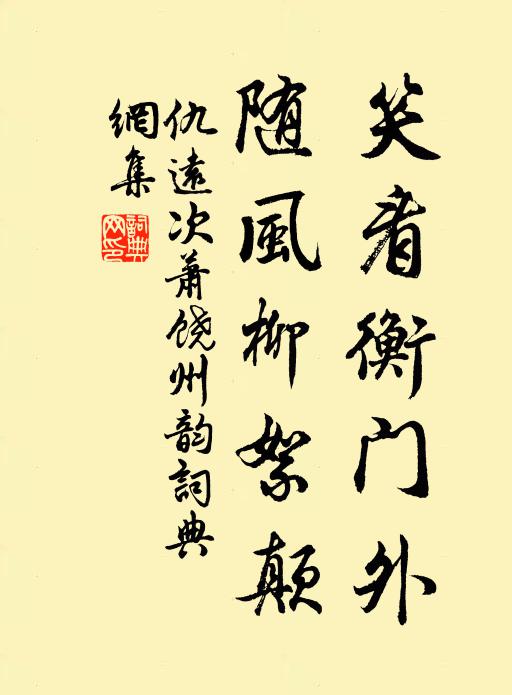 笑看衡门外
随風柳絮顛
仇遠次萧饶州韵詞典
網集
詞典
网印